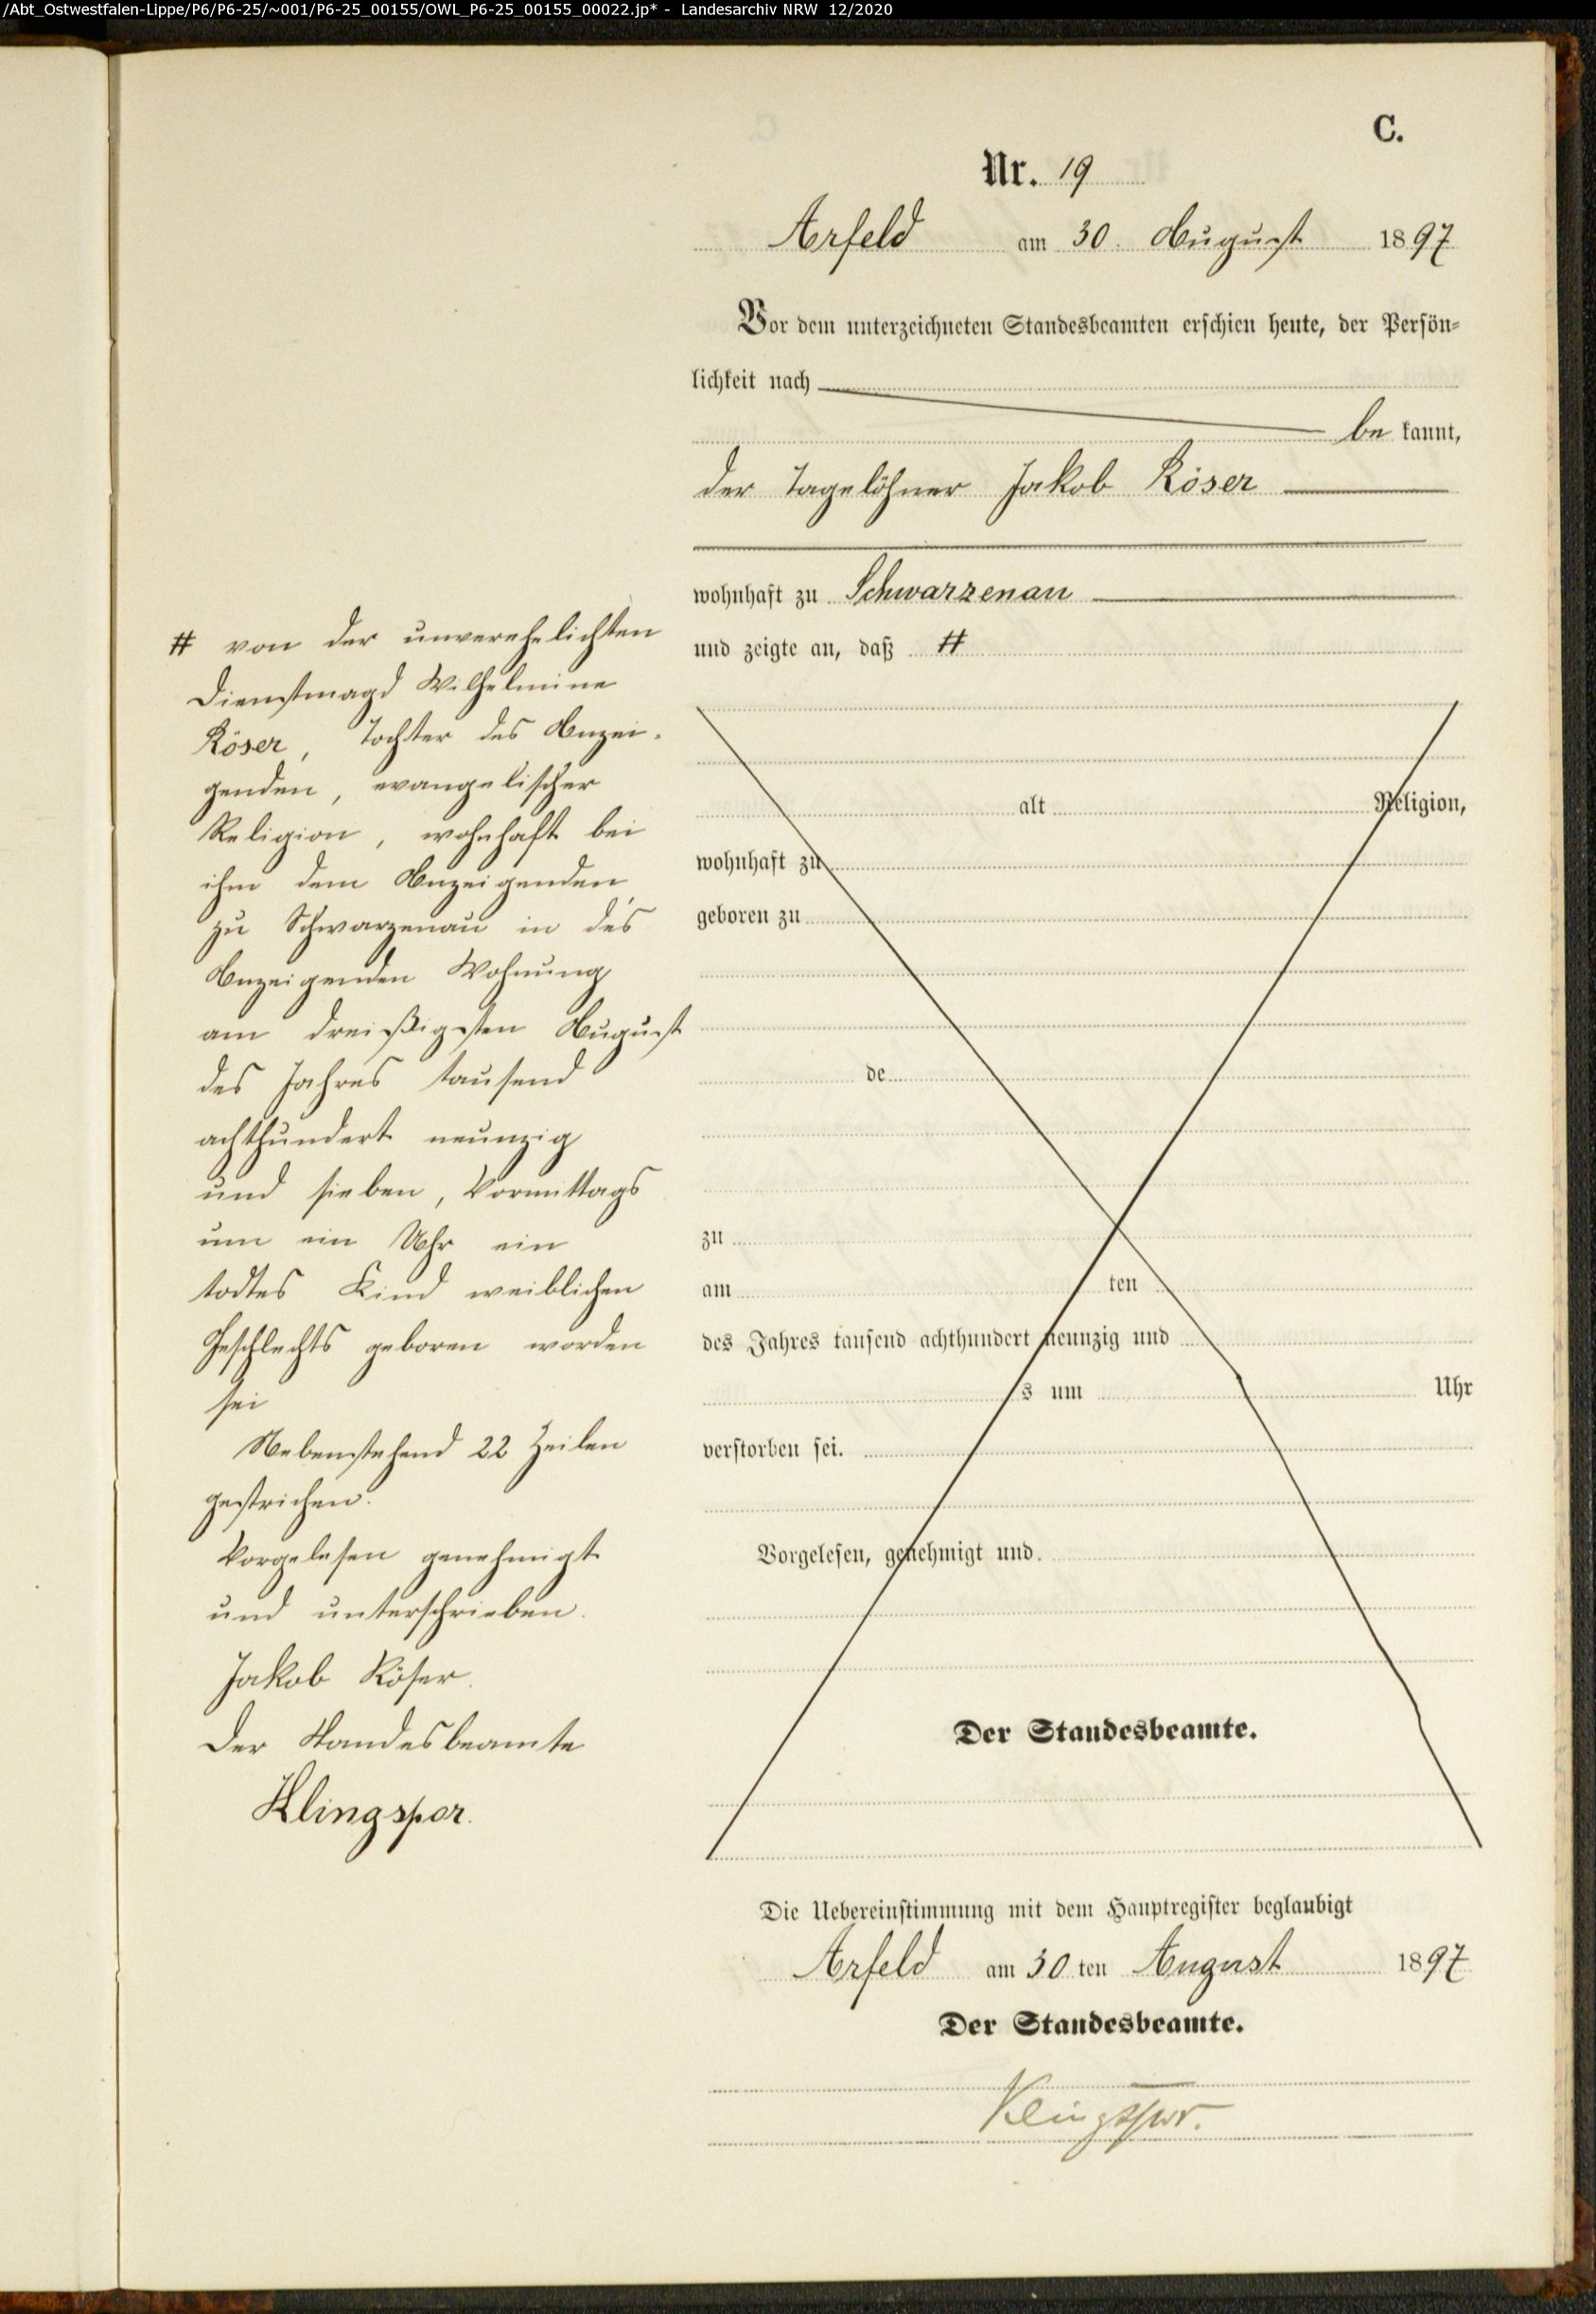 /Abt_Ostwestfalen-Lippe/P6/P6-25/~001/P6-25_00155/OWL_P6-25_00155_00022.jp* - Landesarchiv NRW 12/2020
C.
Nr. 19
Arfeld am 30. August 1897
Vor dem unterzeichneten Standesbeamten erschien heute, der Persön-
lichkeit nach
be kannt,
der Tagelöhner Jakob Röser
wohnhaft zu Schwarzenau
und zeigte an, daß #
# von der unverehelichten
Dienstmagd Wilhelmine
Röser, Tochter des Anzei-
genden, evangelischer
Religion, wohnhaft bei
ihm dem Anzeigenden
zu Schwarzenau in des
Anzeigenden Wohnung
am dreißigsten August
des Jahres tausend
achthundert neunzig
und sieben, Vormittags
um ein Uhr ein
todtes Kind weiblichen
Geschlechts geboren worden
sei
Nebenstehend 22 Zeilen
gestrichen.
Vorgelesen genehmigt
und unterschrieben.
Jakob Röser.
Der Standesbeamte
Klingspor.
alt Religion,
wohnhaft zu
geboren zu
de
zu
am ten
des Jahres tausend achthundert neunzig und
s um Uhr
verstorben sei.
Vorgelesen, genehmigt und
Der Standesbeamte.
Die Uebereinstimmung mit dem Hauptregister beglaubigt
Arfeld am 30 ten August 1897
Der Standesbeamte.
Klingspor.